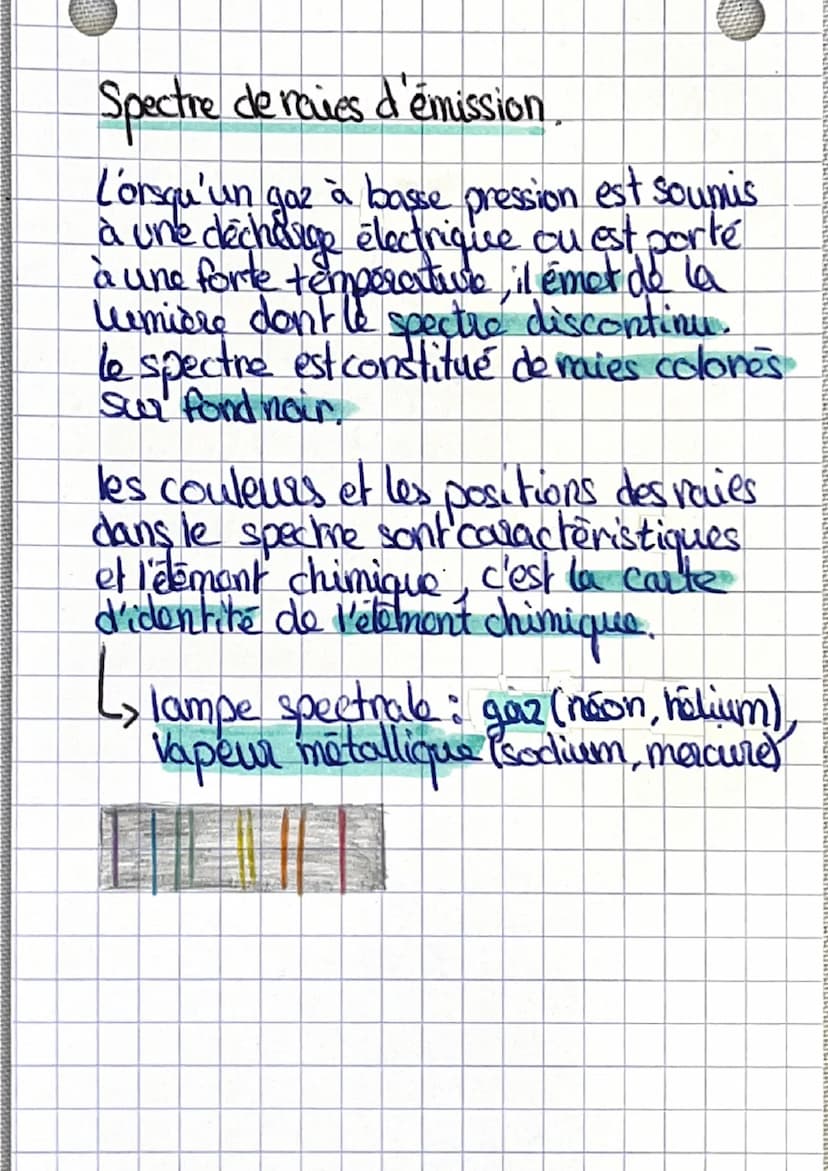 Spectre de raies d'émission.
Lorsqu'un gaz à basse pression est soumis
à une décharge électrique ou est porté
à une forte température, il émet de la
lumière dont le spectre discontinu.
le spectre est constitué de raies colorés
sur fond noir.
les couleurs et les positions des raies
dans le spectre sont caractéristiques
et l'élément chimique, c'est la carte
d'identité de l'élément chimique.
↳ lampe spectrale : gaz (néon, hélium),
vapeur métallique (sodium, mercure)